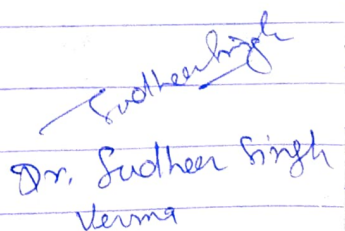 Sudheer Singh
Dr. Sudheer Singh
Verma